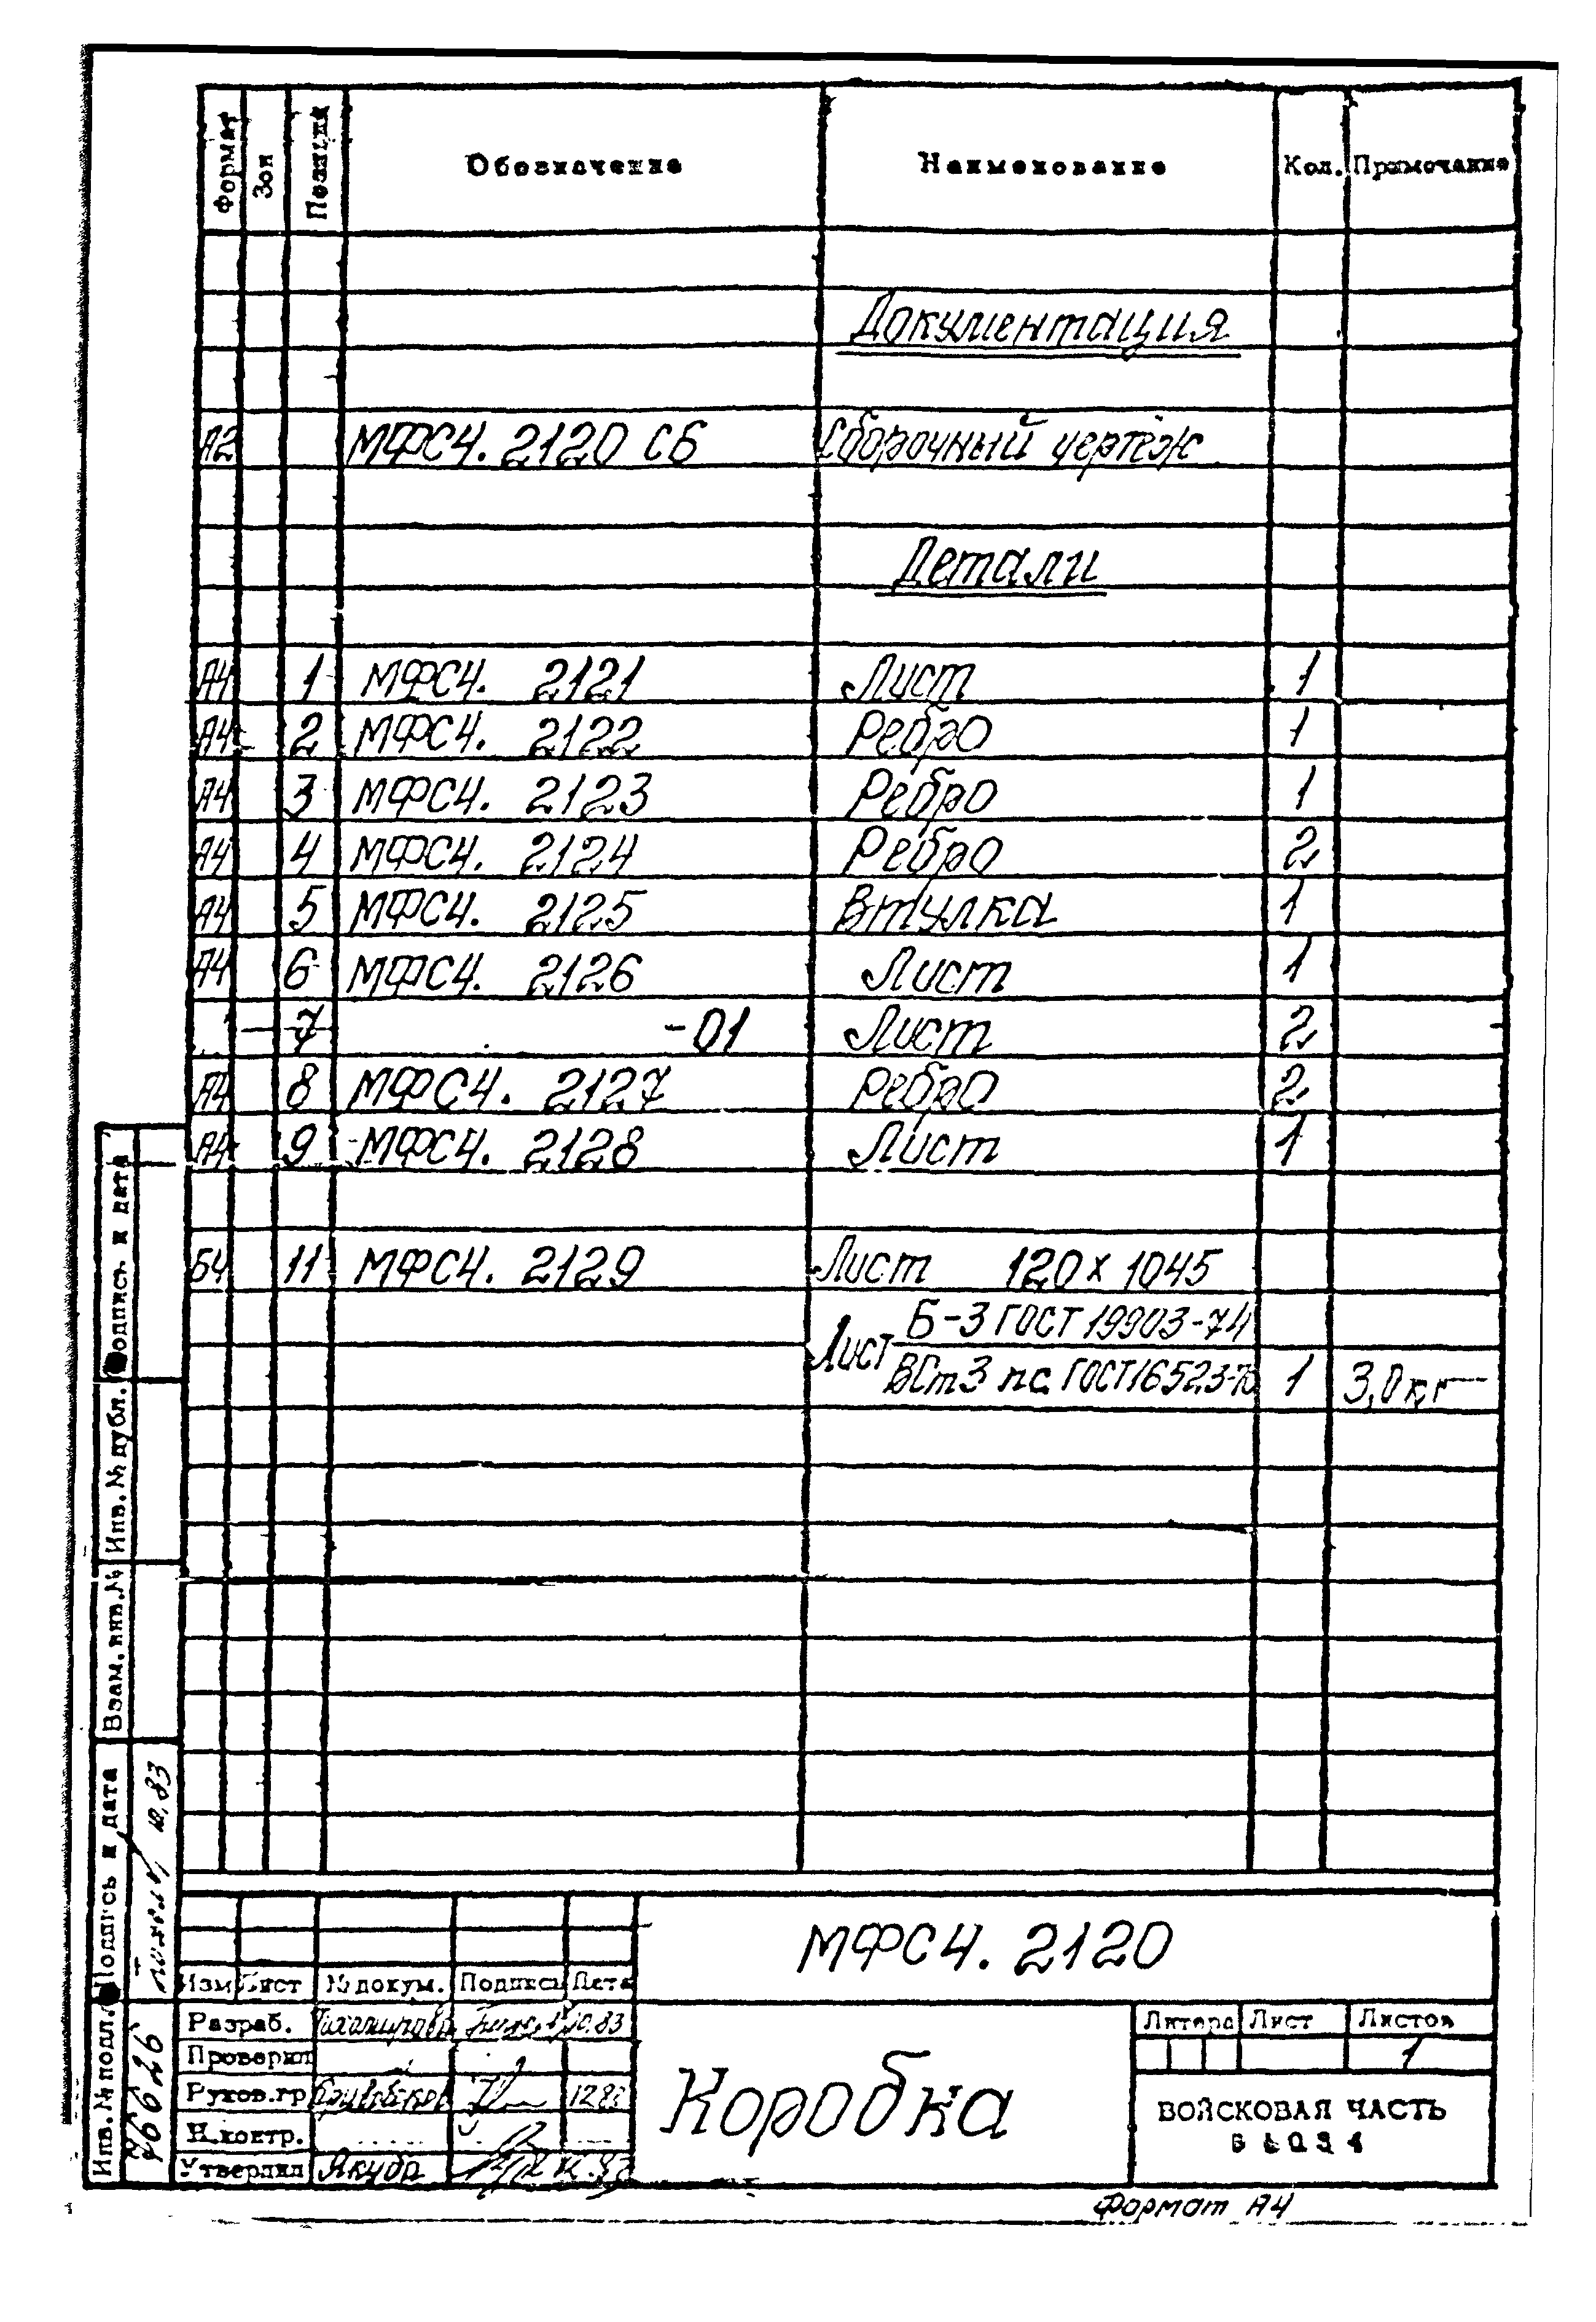 Формат Зон Позиция Обозначение Наименование Кол. Примечание
Документация
А2 МФС4. 2120 СБ Сборочный чертёж
Детали
А4 1 МФС4. 2121 Лист 1
А4 2 МФС4. 2122 Ребро 1
А4 3 МФС4. 2123 Ребро 1
А4 4 МФС4. 2124 Ребро 2
А4 5 МФС4. 2125 Втулка 1
А4 6 МФС4. 2126 Лист 1
7 -01 Лист 2
А4 8 МФС4. 2127 Ребро 2
А4 9 МФС4. 2128 Лист 1
Б4 11 МФС4. 2129 Лист 120 х 1045
Б-3 ГОСТ 19903-74
Лист
ВСт3 пс ГОСТ 16523-70 1 3,0 кг
Подпись и дата
Инв. № дубл.
Взам. инв. №
Подпись и дата 10.83
Инв. № подл. 76626
МФС4. 2120
Изм Лист № докум. Подпись Дата
Разраб. Тихомирова 10.83
Проверил
Руков.гр 12.83
Н.контр.
Утвердил Якуба
Коробка
Литера Лист Листов
1
ВОЙСКОВАЯ ЧАСТЬ
Формат А4